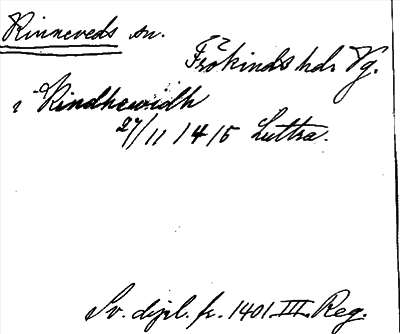 Rinneveds sn.
Frökinds hd. Vg.
i Rindhawidh
27/11 1415 Luttra.
Sv. dipl. fr. 1401 III. Reg.